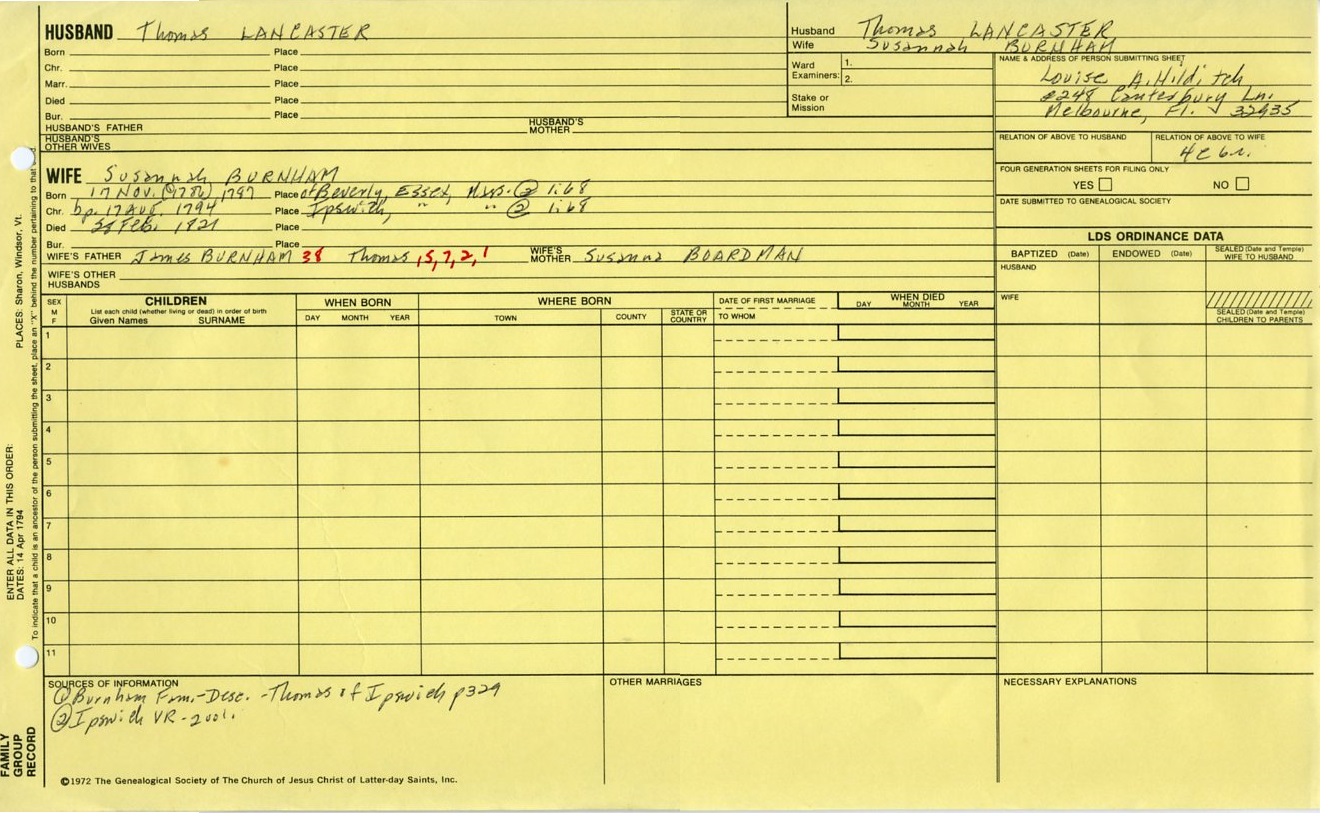 HUSBAND Thomas LANCASTER
Born Place
Chr. Place
Marr. Place
Died Place
Bur. Place
HUSBAND'S FATHER HUSBAND'S MOTHER
HUSBAND'S OTHER WIVES
Husband Thomas LANCASTER
Wife Susannah BURNHAM
Ward Examiners: 1.
2.
Stake or Mission
NAME & ADDRESS OF PERSON SUBMITTING SHEET
Louise A. Hilditch
Canterbury Ln.
Melbourne, Fl. 32935
RELATION OF ABOVE TO HUSBAND RELATION OF ABOVE TO WIFE
FOUR GENERATION SHEETS FOR FILING ONLY
YES NO
DATE SUBMITTED TO GENEALOGICAL SOCIETY
WIFE Susannah BURNHAM
Born 17 NOV. 1797 Place of Beverly, Essex, Mass. ② 1:68
Chr. bp. 17 AUG. 1794 Place Ipswich, " " ② 1:68
Died Feb. 1821 Place
Bur. Place
WIFE'S FATHER James BURNHAM 38 Thomas 15,7,2,1 WIFE'S MOTHER Susanna BOARDMAN
WIFE'S OTHER HUSBANDS
LDS ORDINANCE DATA
BAPTIZED (Date) ENDOWED (Date) SEALED (Date and Temple) WIFE TO HUSBAND
HUSBAND
WIFE
SEALED (Date and Temple) CHILDREN TO PARENTS
SEX M F
CHILDREN
List each child (whether living or dead) in order of birth
Given Names SURNAME
WHEN BORN
DAY MONTH YEAR
WHERE BORN
TOWN COUNTY STATE OR COUNTRY
DATE OF FIRST MARRIAGE
TO WHOM
WHEN DIED
DAY MONTH YEAR
1
2
3
4
5
6
7
8
9
10
11
SOURCES OF INFORMATION
① Burnham Fam.-Desc. -Thomas of Ipswich p329
② Ipswich VR -
OTHER MARRIAGES
NECESSARY EXPLANATIONS
©1972 The Genealogical Society of The Church of Jesus Christ of Latter-day Saints, Inc.
FAMILY GROUP RECORD
ENTER ALL DATA IN THIS ORDER:
DATES: 14 Apr 1794 PLACES: Sharon, Windsor, Vt.
To indicate that a child is an ancestor of the person submitting the sheet, place an "X" behind the number pertaining to that child.